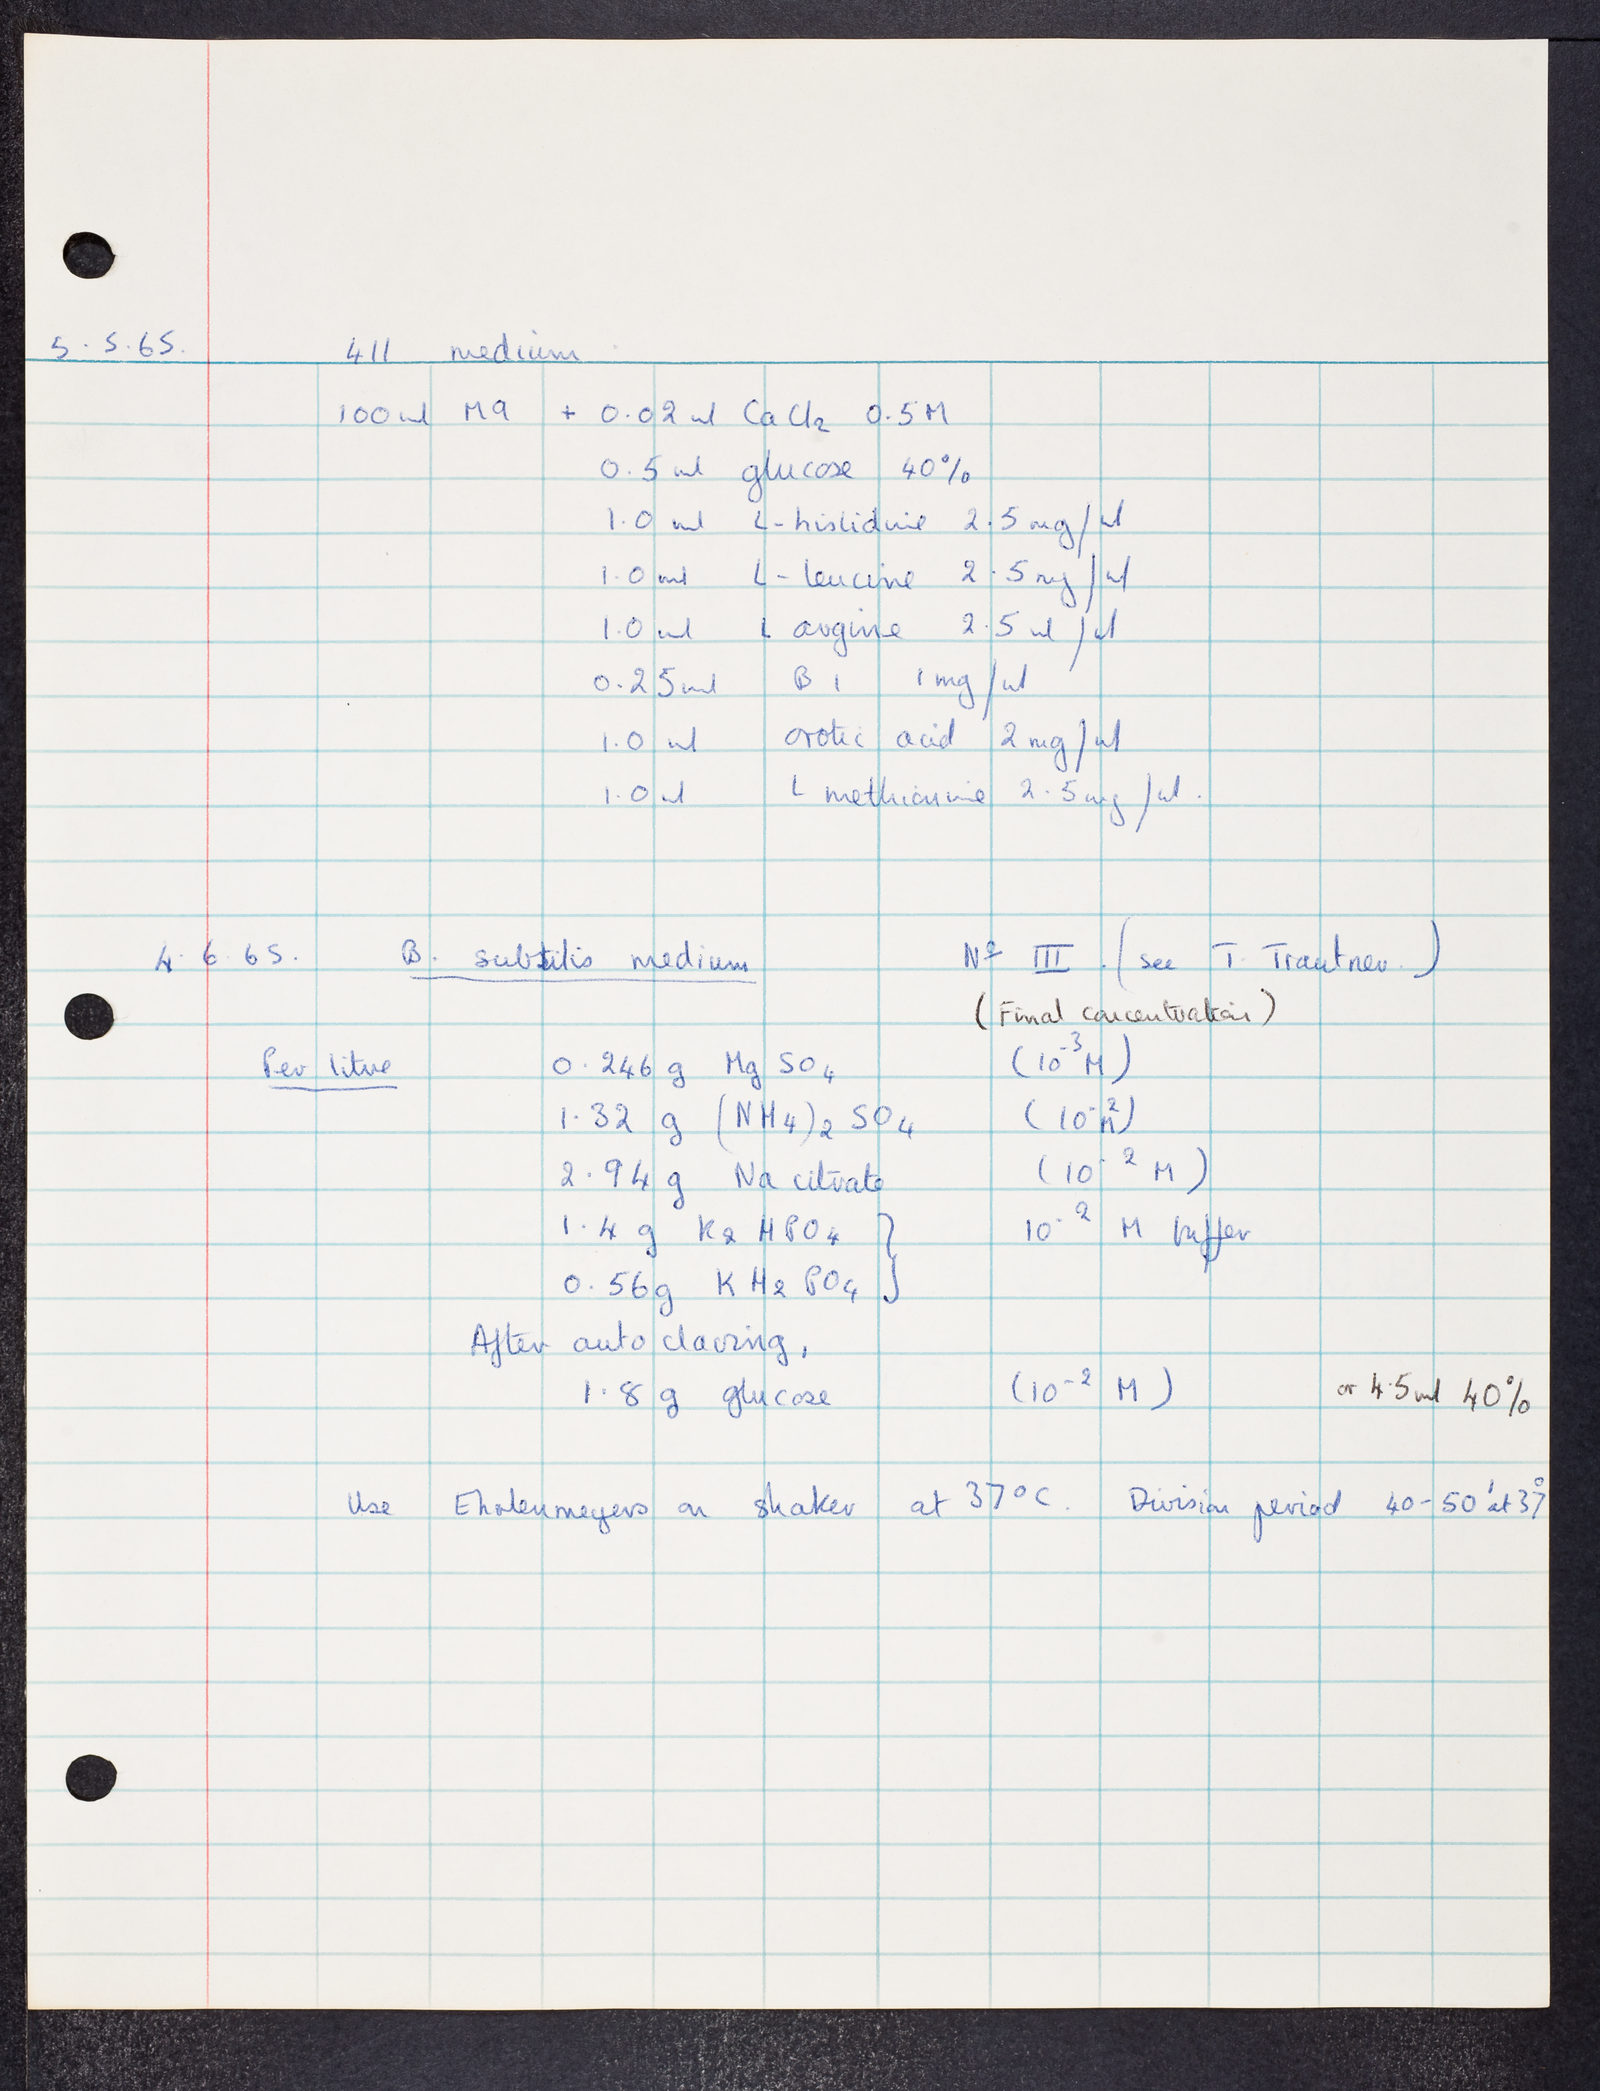 5.5.65. 411 medium
100 ml M9 + 0.02 ml CaCl2 0.5M
0.5 ml glucose 40%
1.0 ml L-histidine 2.5 mg/ml
1.0 ml L-leucine 2.5 mg/ml
1.0 ml L argine 2.5 ml/ml
0.25 ml B1 1 mg/ml
1.0 ml orotic acid 2 mg/ml
1.0 ml L methionine 2.5 mg/ml.
4.6.65. B. subtilis medium Nº III. (see T. Trautner.)
(Final concentration)
Per litre 0.246 g MgSO4 (10-3 M)
1.32 g (NH4)2 SO4 (10-2 M)
2.94 g Na citrate (10-2 M)
1.4 g K2HPO4 } 10-2 M buffer
0.56 g KH2PO4 }
After autoclaving,
1.8 g glucose (10-2 M) or 4.5 ml 40%
Use Eholenmeyers on shaker at 37°C. Division period 40-50' at 37°